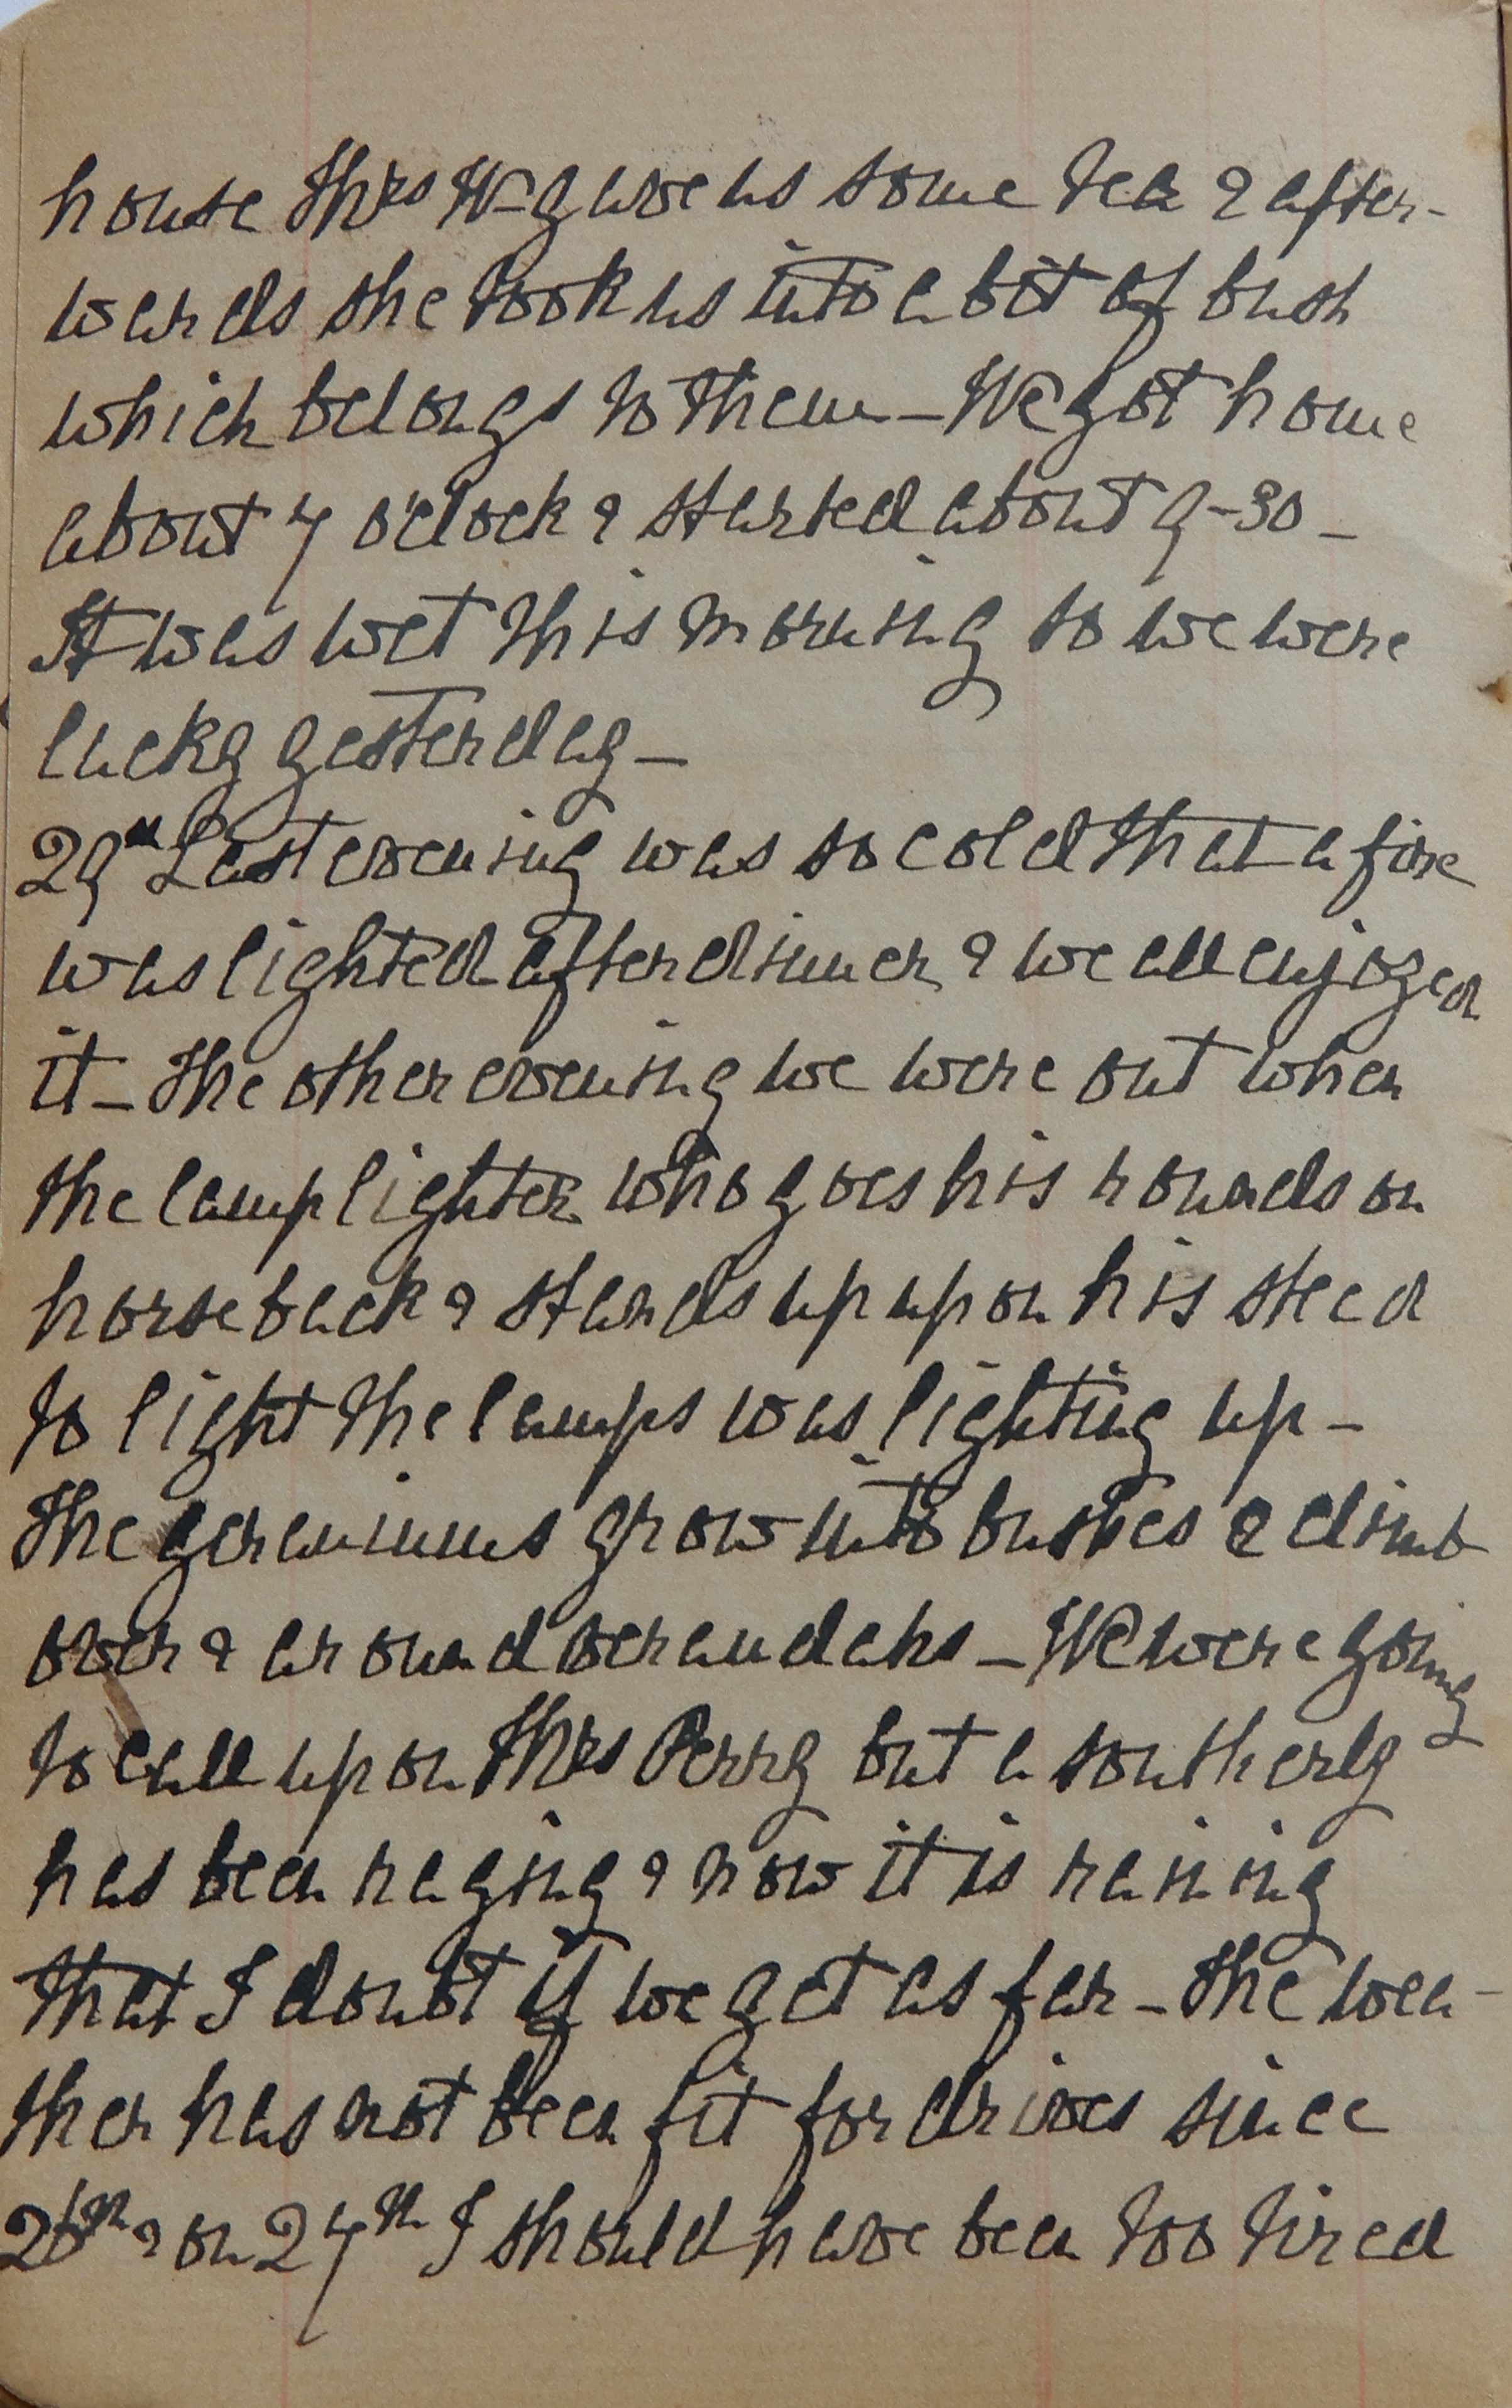 house Mrs W- gave us some tea & after-
wards she took us into a bit of bush
which belongs to them - We got home
about 7 o'clock & started about 9-30 -
It was wet this morning so we were
lucky yesterday -
29th Last evening was so cold that a fire
was lighted after dinner & we all enjoyed
it - The other evening we were out when
the lamplighter who goes his rounds on
horseback & stands up upon his steed
to light the lamps was lighting up -
The geraniums grow into bushes & climb
over & around verandahs - We were going
to call upon Mrs Perry but a southerly
has been raging & now it is raining
that I doubt if we get as far - The wea-
ther has not been fit for drives since
26th & on 27th I should have been too tired